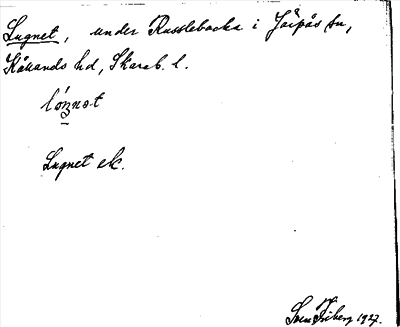 Lugnet, under Russlebacka i Järpås sn,
Kållands hd, Skarab. l.
Lugnet ek.
Sven Friberg 1927.